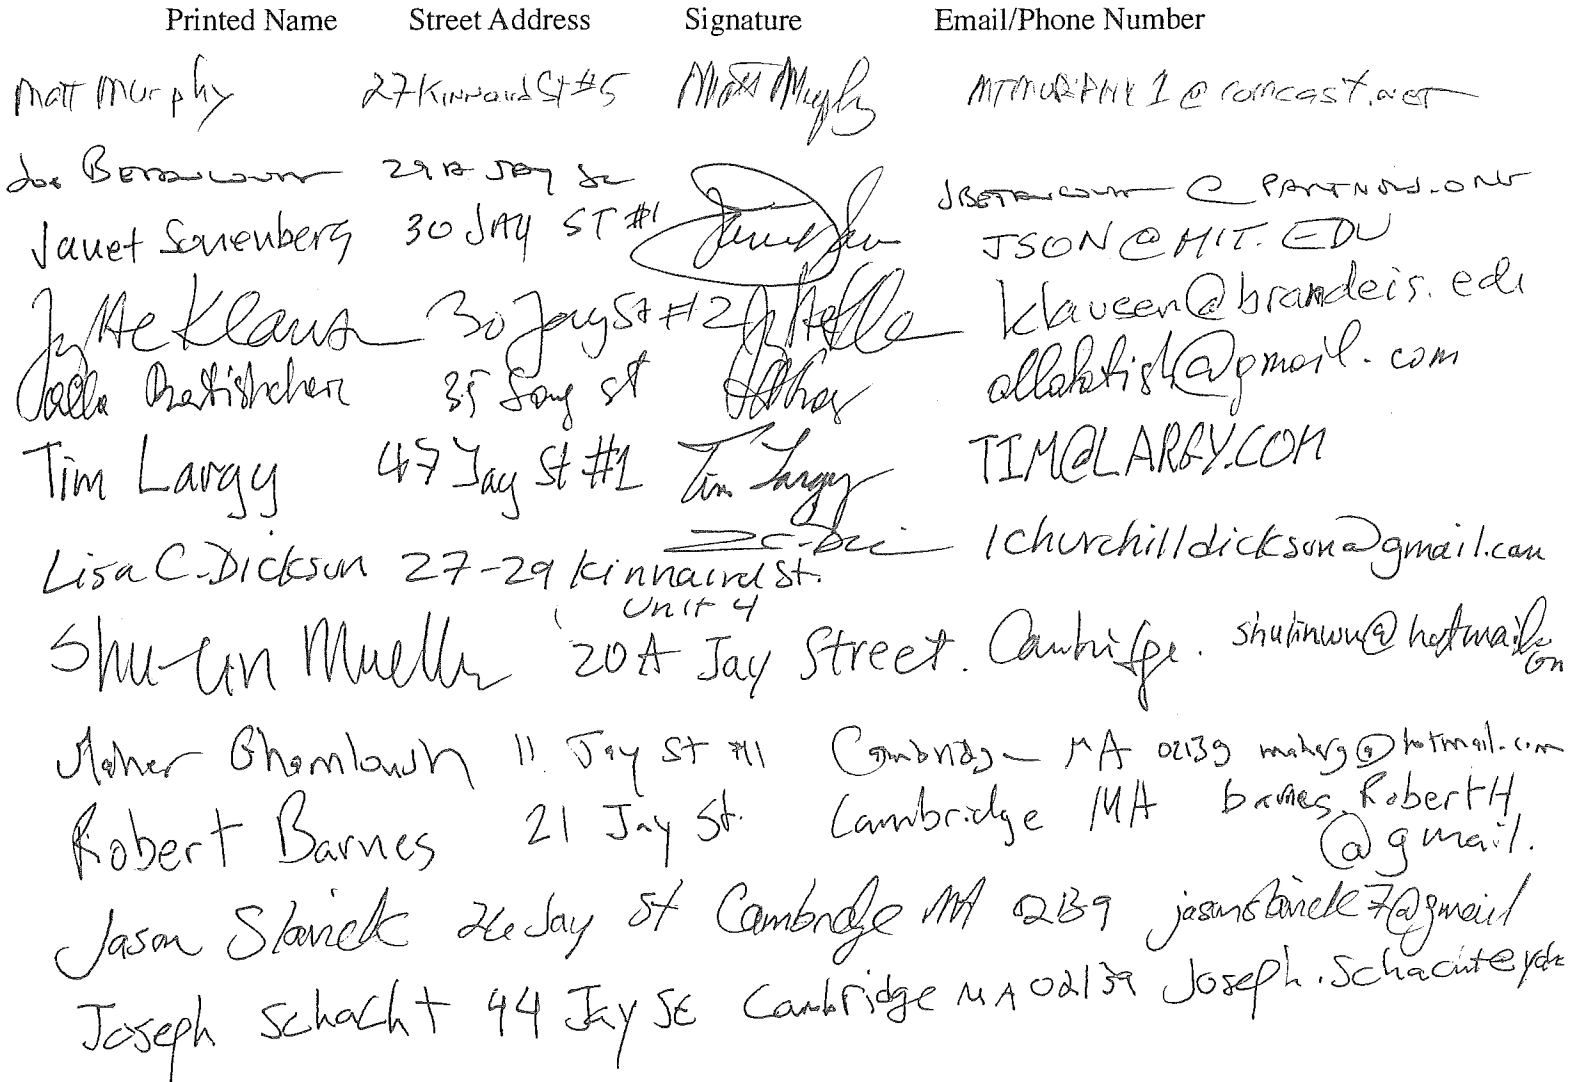 Printed Name Street Address Signature Email/Phone Number
Matt Murphy 27 Kinnaird St #5 Matt Murphy MTMURPHY1@comcast.net
Joe Betancourt 29A Jay St JBETANCOURT@PARTNERS.ORG
Janet Sonenberg 30 JAY ST #1 JSON@MIT.EDU
Jytte Klausen 30 Jay St #2 klausen@brandeis.edu
35 Jay St @gmail.com
Tim Largy 47 Jay St #1 Tim Largy TIM@LARGY.COM
Lisa C. Dickson 27-29 Kinnaird St. lchurchilldickson@gmail.com
Unit 4
Shu-Lin Mueller 20A Jay Street. Cambridge. shulinwu@hotmail.com
Maher 11 Jay St #1 Cambridge MA 02139 maherg@hotmail.com
Robert Barnes 21 Jay St. Cambridge MA barnes.RobertH
@gmail.
Jason Slavick Jay St Cambridge MA 02139 jasonslavick7@gmail
Joseph Schacht 44 Jay St Cambridge MA 02139